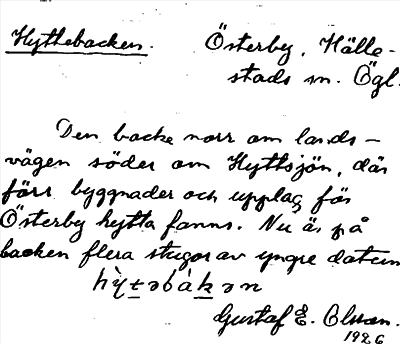 Hyttebacken. Österby, Hälle-
stads sn. Ögl.
Den backe norr om lands-
vägen söder om Hyttsjön, där
förr byggnader och upplag för
Österby hytta fanns. Nu är på
backen flera stugor av yngre datum
hỳt̲əbàk̲ən
Gustaf E. Olsson.
1926